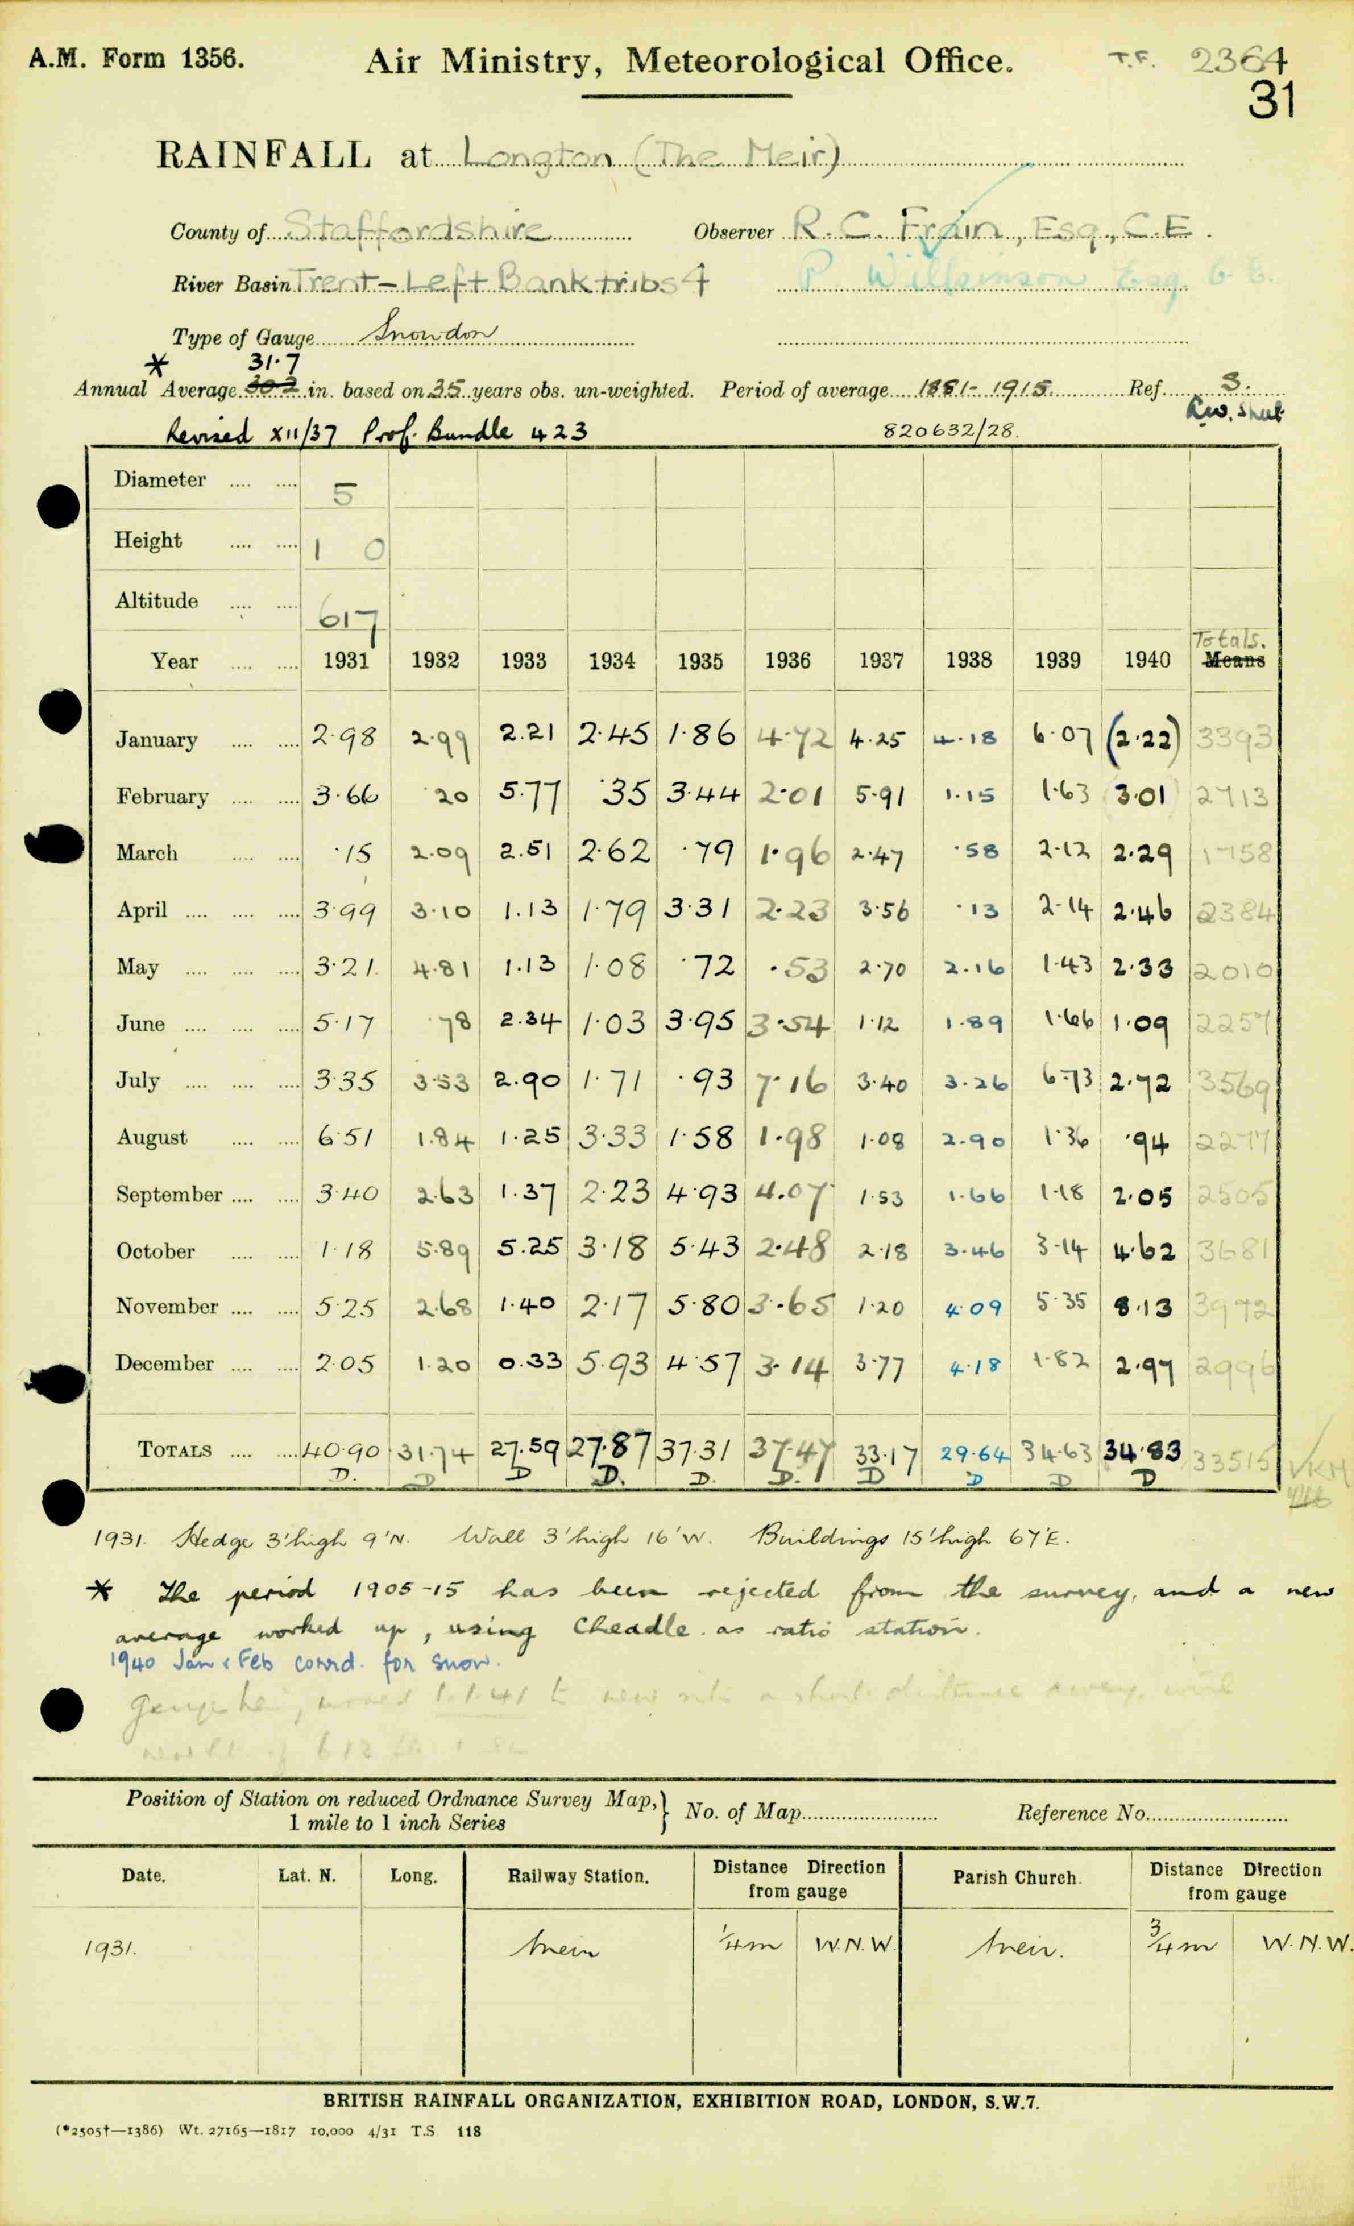 A.M. Form 1356. Air Ministry, Meteorological Office. T.F. 2364
31
RAINFALL at Longton (The Meir)
County of Staffordshire Observer R. C. Frain, Esq., C.E.
River Basin Trent - Left Bank tribs 4 P. Wilkinson Esq. C.E.
Type of Gauge Snowdon
* 31.7
Annual Average 30.2 in. based on 35 years obs. un-weighted. Period of average 1881-1915 Ref. S.
Revised XII/37 Prof. Bundle 423 820632/28.
Diameter .... .... 5
Height .... .... 1 0
Altitude .... .... 617
Totals.
Year .... .... 1931 1932 1933 1934 1935 1936 1937 1938 1939 1940 Means
January .... .... 2.98 2.99 2.21 2.45 1.86 4.72 4.25 4.18 6.07 (2.22) 3393
February .... .... 3.66 .20 5.77 .35 3.44 2.01 5.91 1.15 1.63 3.01 2713
March .... .... .15 2.09 2.51 2.62 .79 1.96 2.47 .58 2.12 2.29 1758
April .... .... .... 3.99 3.10 1.13 1.79 3.31 2.23 3.56 .13 2.14 2.46 2384
May .... .... .... 3.21 4.81 1.13 1.08 .72 .53 2.70 2.16 1.43 2.33 2010
June .... .... .... 5.17 .78 2.34 1.03 3.95 3.54 1.12 1.89 1.66 1.09 2257
July .... .... .... 3.35 3.53 2.90 1.71 .93 7.16 3.40 3.26 6.73 2.72 3569
August .... .... 6.51 1.84 1.25 3.33 1.58 1.98 1.08 2.90 1.36 .94 2277
September .... .... 3.40 2.63 1.37 2.23 4.93 4.07 1.53 1.66 1.18 2.05 2505
October .... .... 1.18 5.89 5.25 3.18 5.43 2.48 2.18 3.46 3.14 4.62 3681
November .... .... 5.25 2.68 1.40 2.17 5.80 3.65 1.20 4.09 5.35 8.13 3972
December .... .... 2.05 1.20 0.33 5.93 4.57 3.14 3.77 4.18 1.82 2.97 2996
TOTALS .... .... 40.90 31.74 27.59 27.87 37.31 37.47 33.17 29.64 34.63 34.83 33515
D. D D D. D. D. D D D D
1931. Hedge 3' high 9' N. Wall 3' high 16' W. Buildings 15' high 67' E.
* The period 1905-15 has been rejected from the survey, and a new
average worked up, using Cheadle as ratio station.
1940 Jan & Feb corrd. for snow.
moved 1.1.41 to new site a short distance away,
Position of Station on reduced Ordnance Survey Map,} No. of Map Reference No.
1 mile to 1 inch Series
Date. Lat. N. Long. Railway Station. Distance Direction from gauge Parish Church. Distance Direction from gauge
1931. Meir 1/4 m W.N.W. Meir. 3/4 m W.N.W.
BRITISH RAINFALL ORGANIZATION, EXHIBITION ROAD, LONDON, S.W.7.
(*2505†—1386) Wt. 27165—1817 10,000 4/31 T.S 118